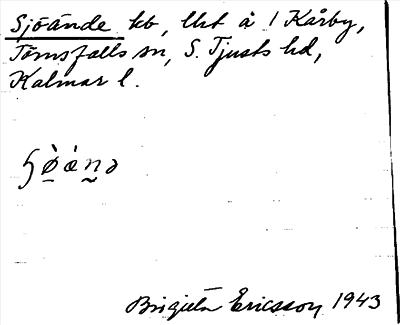 Sjöände kb, lht å 1 Kårby,
Törnsfalls sn, S. Tjusts hd,
Kalmar l.
Birgitta Ericsson 1943